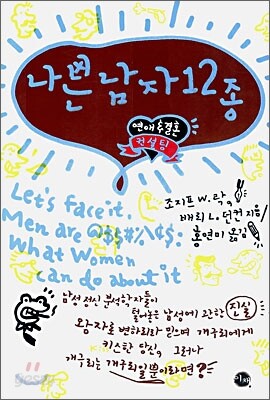 나쁜 남자 12종
연애 & 결혼
컨설팅
Let's face it.
Men are @$$#%\¢$:
What Women
can do about it
조지프 W. 락,
배리 L. 던컨 지음/
홍연미 옮김
남성 정신 분석학자들이
털어놓은 남성에 관한 진실
왕자로 변하리라 믿으며 개구리에게
키스한 당신, 그러나
개구리는 개구리일뿐이라면?